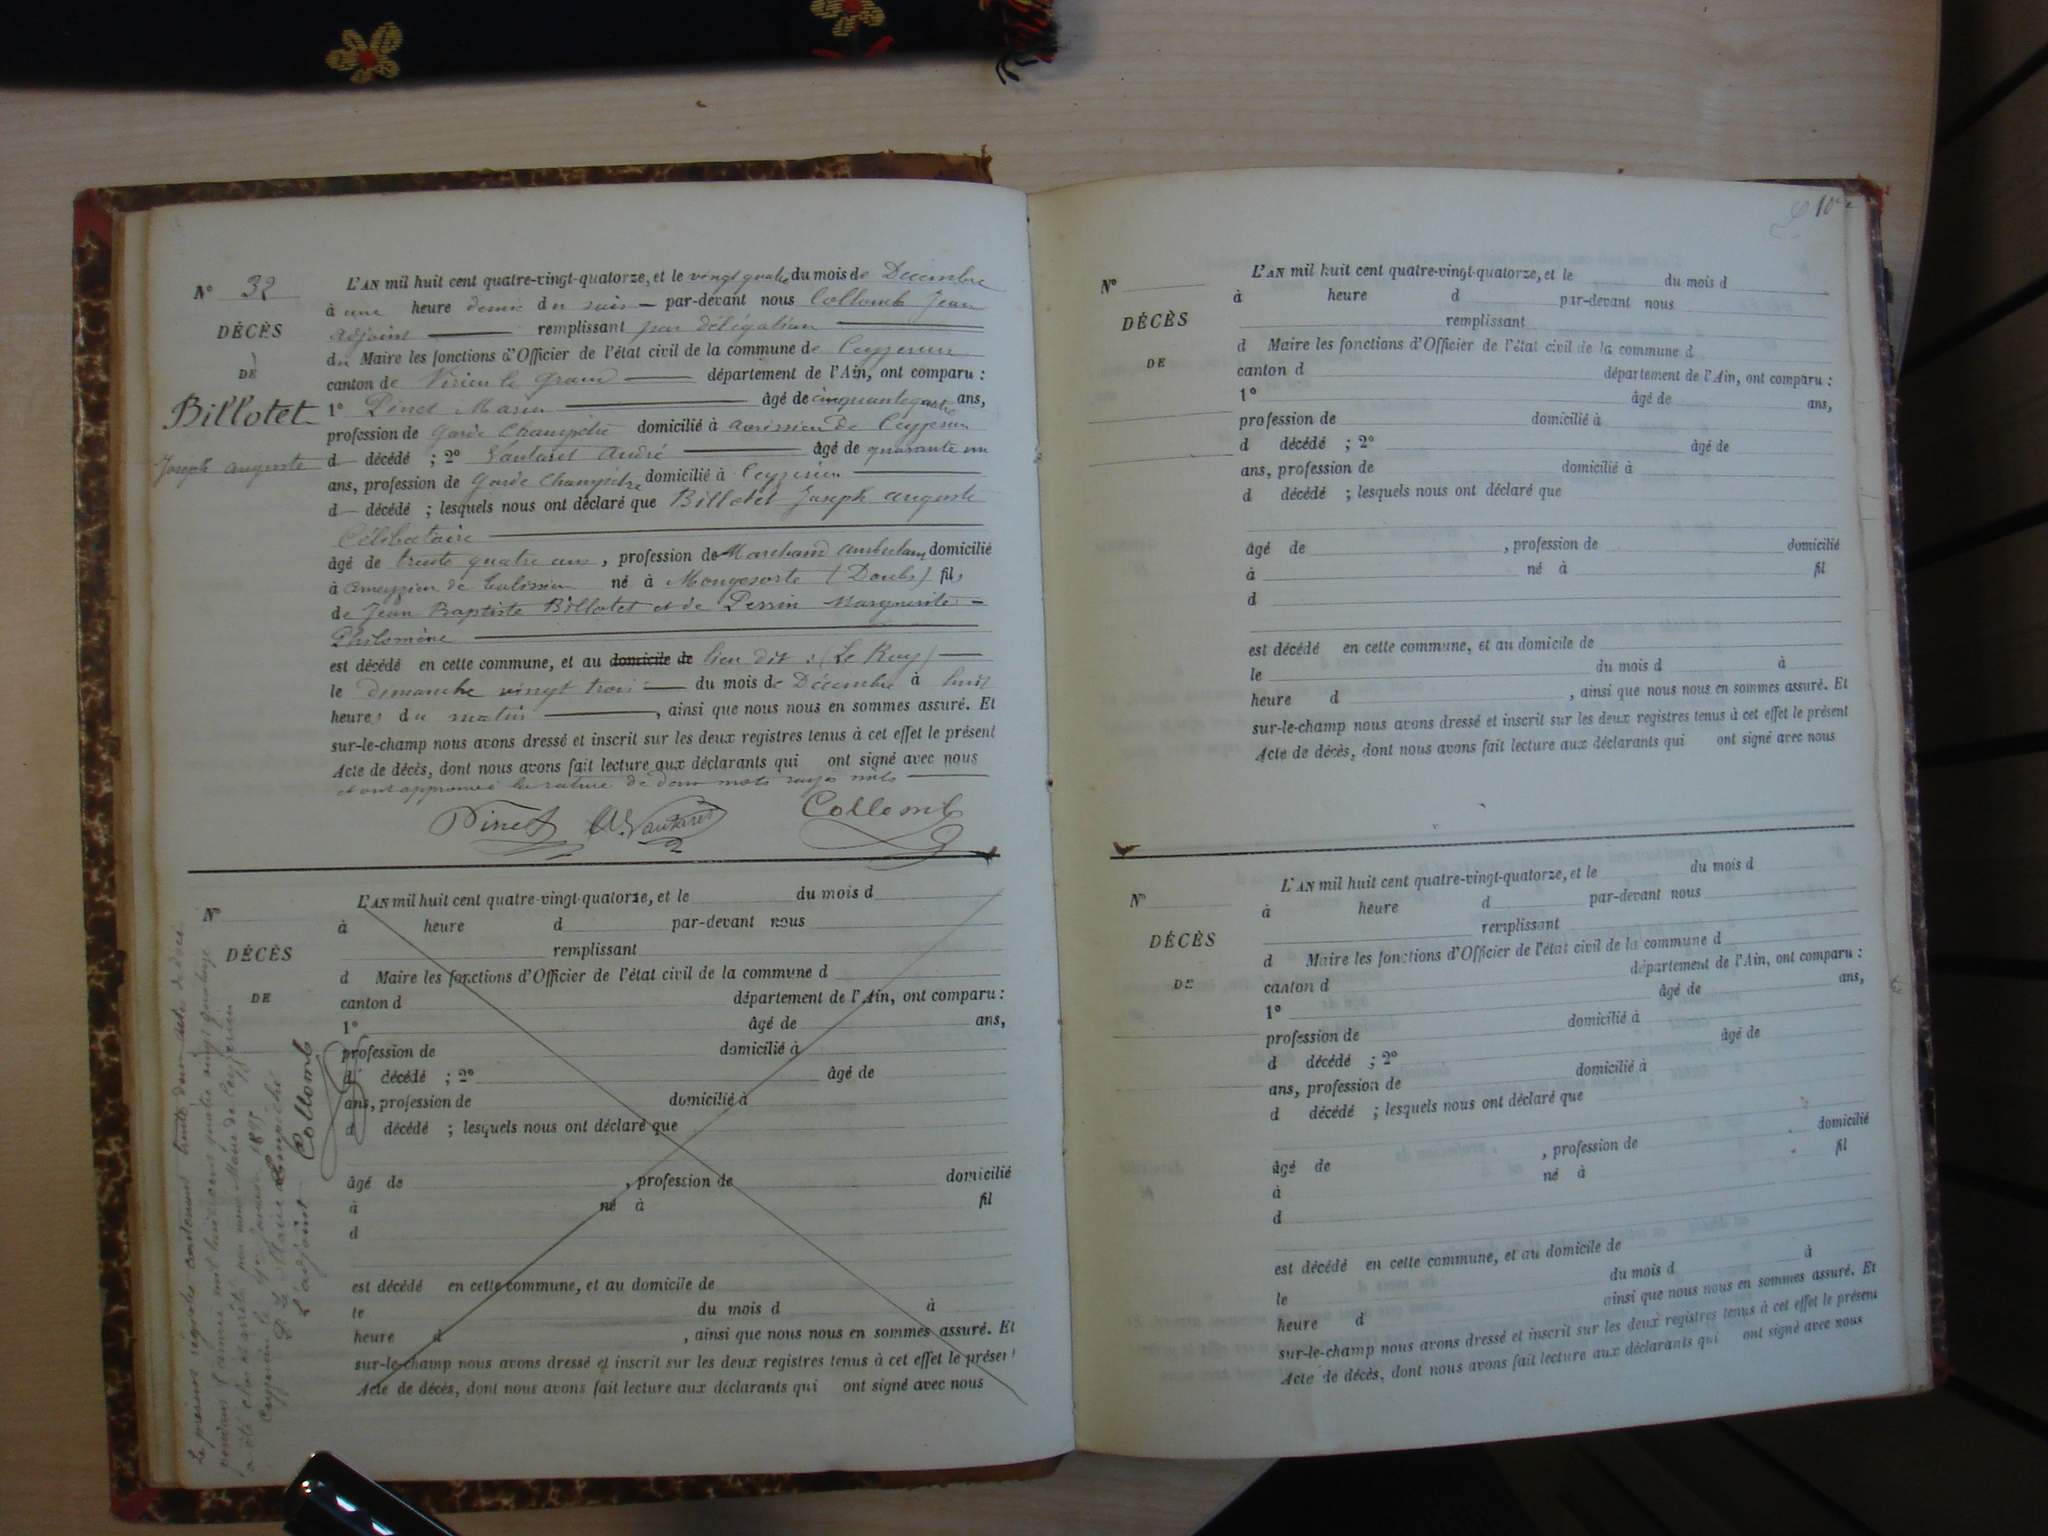 N° 32
DÉCÈS
DE
Billotet
Joseph auguste
L'AN mil huit cent quatre-vingt-quatorze, et le vingt quatre du mois de Décembre
à une heure demie du soir — par-devant nous Collomb Jean
adjoint — remplissant par délégation
du Maire les fonctions d'Officier de l'état civil de la commune de Ceyzerieu
canton de Virieu le Grand — département de l'Ain, ont comparu :
1° Pinet Marin — âgé de cinquante quatre ans,
profession de Garde Champêtre domicilié à avrissieu de Ceyzerieu
d— décédé ; 2° Vautaret André — âgé de quarante un
ans, profession de Garde Champêtre domicilié à Ceyzerieu
d— décédé ; lesquels nous ont déclaré que Billotet Joseph auguste
Célibataire
âgé de trente quatre ans, profession de Marchand ambulant domicilié
à ameyzieu de Talissieu né à (Doubs) fils
de Jean Baptiste Billotet et de Perrin Marguerite
Philomène
est décédé en cette commune, et au domicile de lieu dit : (Le Ruy)
le dimanche vingt trois — du mois de Décembre à huit
heures du matin —, ainsi que nous nous en sommes assuré. Et
sur-le-champ nous avons dressé et inscrit sur les deux registres tenus à cet effet le présent
Acte de décès, dont nous avons fait lecture aux déclarants qui ont signé avec nous
et ont approuvé la rature de deux mots rayés nuls
Pinet Vautaret Collomb
N°
DÉCÈS
DE
L'AN mil huit cent quatre-vingt-quatorze, et le du mois d
à heure d par-devant nous
remplissant
d Maire les fonctions d'Officier de l'état civil de la commune d
canton d département de l'Ain, ont comparu :
1° âgé de ans,
profession de domicilié à
d décédé ; 2° âgé de
ans, profession de domicilié à
d décédé ; lesquels nous ont déclaré que
âgé de , profession de domicilié
à né à fil
d
est décédé en cette commune, et au domicile de
le du mois d à
heure d , ainsi que nous nous en sommes assuré. Et
sur-le-champ nous avons dressé et inscrit sur les deux registres tenus à cet effet le présent
Acte de décès, dont nous avons fait lecture aux déclarants qui ont signé avec nous
Le présent registre contenant trente deux acte de décès
pendant l'année mil huit cent quatre vingt quatorze
a été clos et arrêté par nous Maire de Ceyzerieu
Ceyzerieu le janvier 1895
P. Le Maire empêché
L'adjoint Collomb
10e
N°
DÉCÈS
DE
L'AN mil huit cent quatre-vingt-quatorze, et le du mois d
à heure d par-devant nous
remplissant
d Maire les fonctions d'Officier de l'état civil de la commune d
canton d département de l'Ain, ont comparu :
1° âgé de ans,
profession de domicilié à
d décédé ; 2° âgé de
ans, profession de domicilié à
d décédé ; lesquels nous ont déclaré que
âgé de , profession de domicilié
à né à fil
d
est décédé en cette commune, et au domicile de
le du mois d à
heure d , ainsi que nous nous en sommes assuré. Et
sur-le-champ nous avons dressé et inscrit sur les deux registres tenus à cet effet le présent
Acte de décès, dont nous avons fait lecture aux déclarants qui ont signé avec nous
N°
DÉCÈS
DE
L'AN mil huit cent quatre-vingt-quatorze, et le du mois d
à heure d par-devant nous
remplissant
d Maire les fonctions d'Officier de l'état civil de la commune d
canton d département de l'Ain, ont comparu :
1° âgé de ans,
profession de domicilié à
d décédé ; 2° âgé de
ans, profession de domicilié à
d décédé ; lesquels nous ont déclaré que
âgé de , profession de domicilié
à né à fil
d
est décédé en cette commune, et au domicile de
le du mois d à
heure d ainsi que nous nous en sommes assuré. Et
sur-le-champ nous avons dressé et inscrit sur les deux registres tenus à cet effet le présent
Acte de décès, dont nous avons fait lecture aux déclarants qui ont signé avec nous